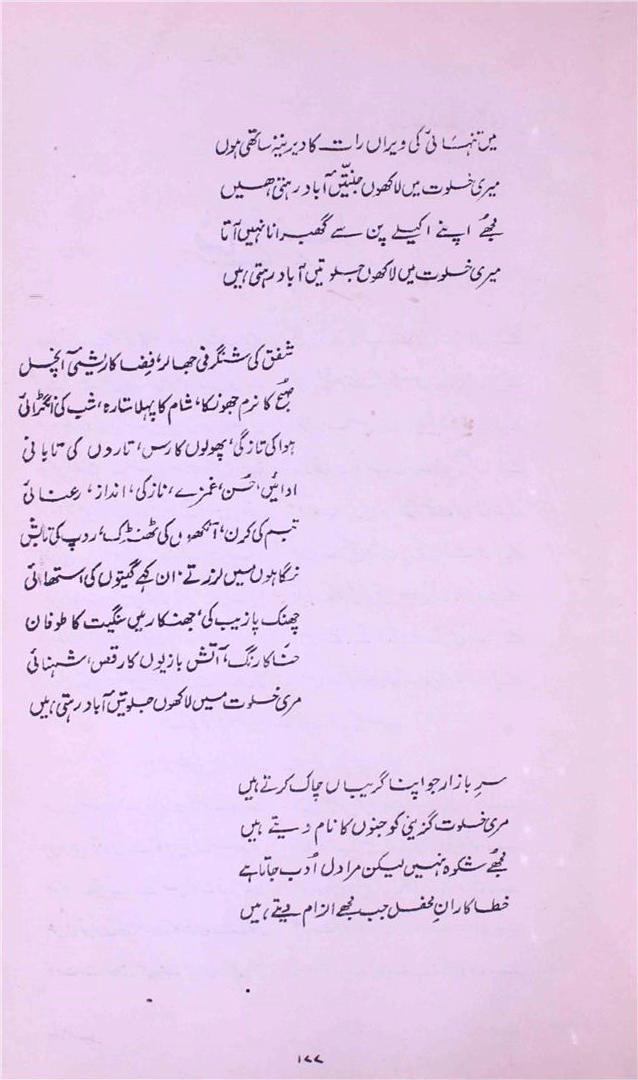 میں تنہائی کی ویراں رات کا دیرینہ ساتھی ہوں
میری خلوت میں لاکھوں جنتیں آباد رہتی ھیں
مجھے اپنے اکیلے پن سے گھبرانا نہیں آتا
میری خلوت میں لاکھوں جلوتیں آباد رہتی ہیں
شفق کی شنگرفی جھالر، فضا کا ریشمی آنچل
صبح کا نرم جھونکا، شام کا پہلا ستارہ، شب کی انگڑائی
ہوا کی تازگی، پھولوں کا رس، تاروں کی تابانی
ادائیں، حُسن، غمزے، نازکی، انداز، رعنائی
تبسم کی کرن، آنکھوں کی ٹھنڈک، روپ کی تابش
نگاہوں میں لرزتے، ان کہے گیتوں کی استھائی
چھنک پازیب کی، جھنکار میں سنگیت کا طوفان
حنا کا رنگ، آتش بازیوں کا رقص، شہنائی
مری خلوت میں لاکھوں جلوتیں آباد رہتی ہیں
سرِ بازار جو اپنا گریباں چاک کرتے ہیں
مری خلوت گزینی کو جنوں کا نام دیتے ہیں
مجھے شکوہ نہیں لیکن مرا دل ڈوب جاتا ہے
خطا کارانِ محفل جب مجھے الزام دیتے ہیں
۱۷۷